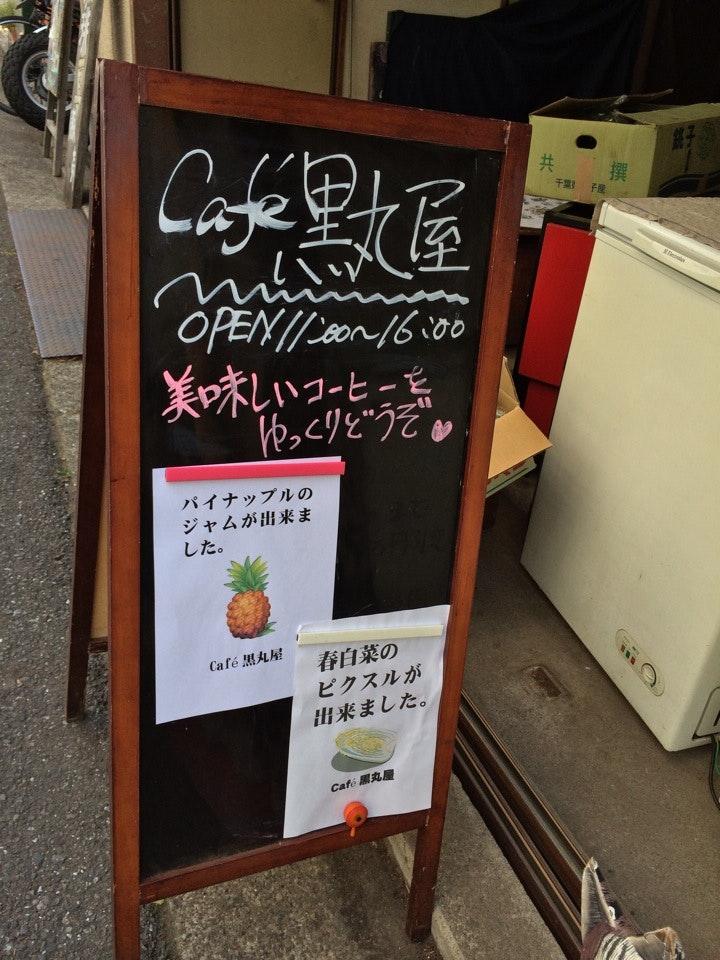 Café 黒丸屋
OPEN 11:00~16:00
美味しいコーヒーを
ゆっくりどうぞ♡
パイナップルの
ジャムが出来ま
した。
Café 黒丸屋
春白菜の
ピクスルが
出来ました。
Café 黒丸屋
共 撰
銚子
Electrolux